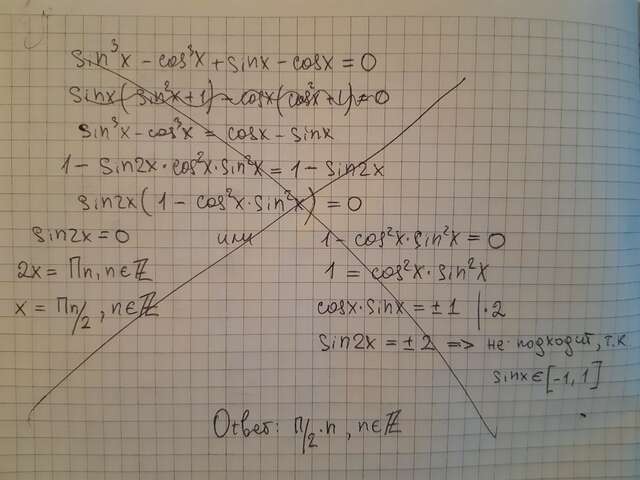 sin³x - cos³x + sinx - cosx = 0
sinx(sin²x+1) - cosx(cos²x+1) = 0
sin³x - cos³x = cosx - sinx
1 - sin2x·cos²x·sin²x = 1 - sin2x
sin2x(1 - cos²x·sin²x) = 0
sin2x = 0 или 1 - cos²x·sin²x = 0
2x = Πn, n∈ℤ 1 = cos²x·sin²x
x = Πn/2, n∈ℤ cosx·sinx = ±1 |·2
sin2x = ±2 => не подходит, т.к
sinx∈[-1,1]
Ответ: Π/2·n, n∈ℤ